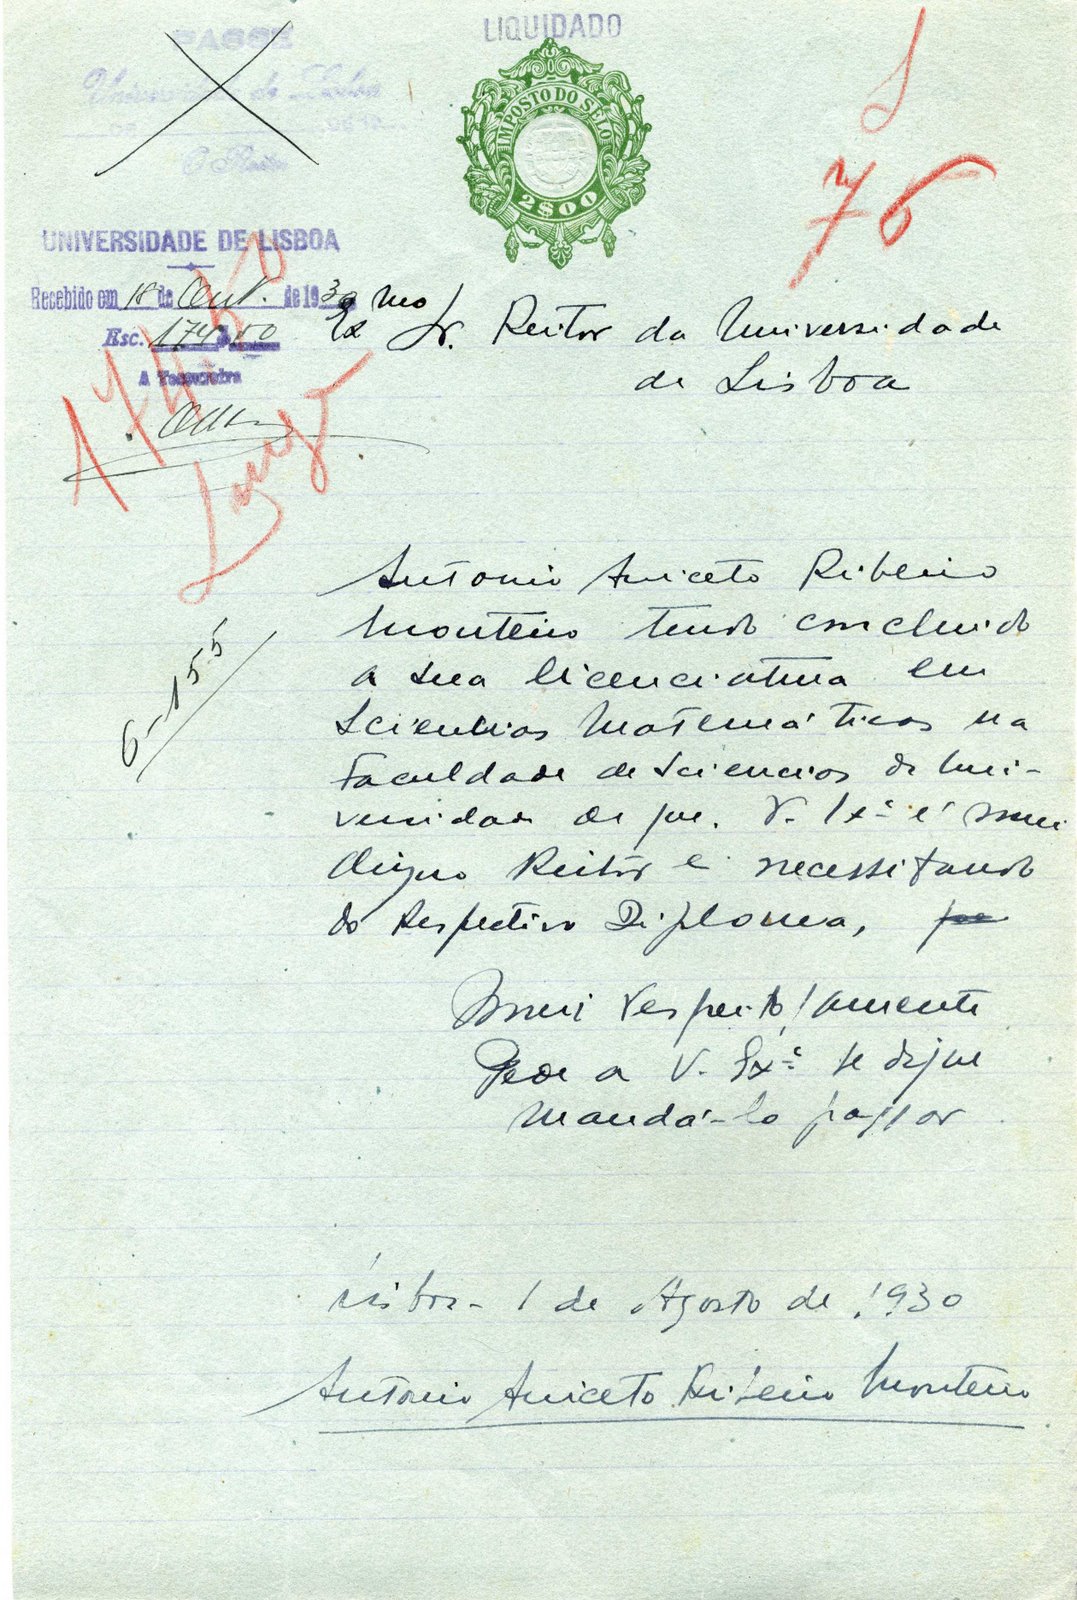 LIQUIDADO
PASSE
Universidade de Lisboa
O Reitor
IMPOSTO DO SELO
2$00
76
UNIVERSIDADE DE LISBOA
Recebido em 18 de Out. de 1930
Esc. 174$50
A Tesoureira
174$50
Exmo Sr. Reitor da Universidade
de Lisboa
6-155
Antonio Aniceto Ribeiro
Monteiro tendo concluido
a sua licenciatura em
Sciencias Matemáticas na
Faculdade de Sciencias da Uni-
versidade de que V. Exª é mui
digno Reitor e necessitando
do respectivo Diploma,
Mui respeitosamente
Pede a V. Exª se digne
mandá-lo passar
Lisboa - 1 de Agosto de 1930
Antonio Aniceto Ribeiro Monteiro